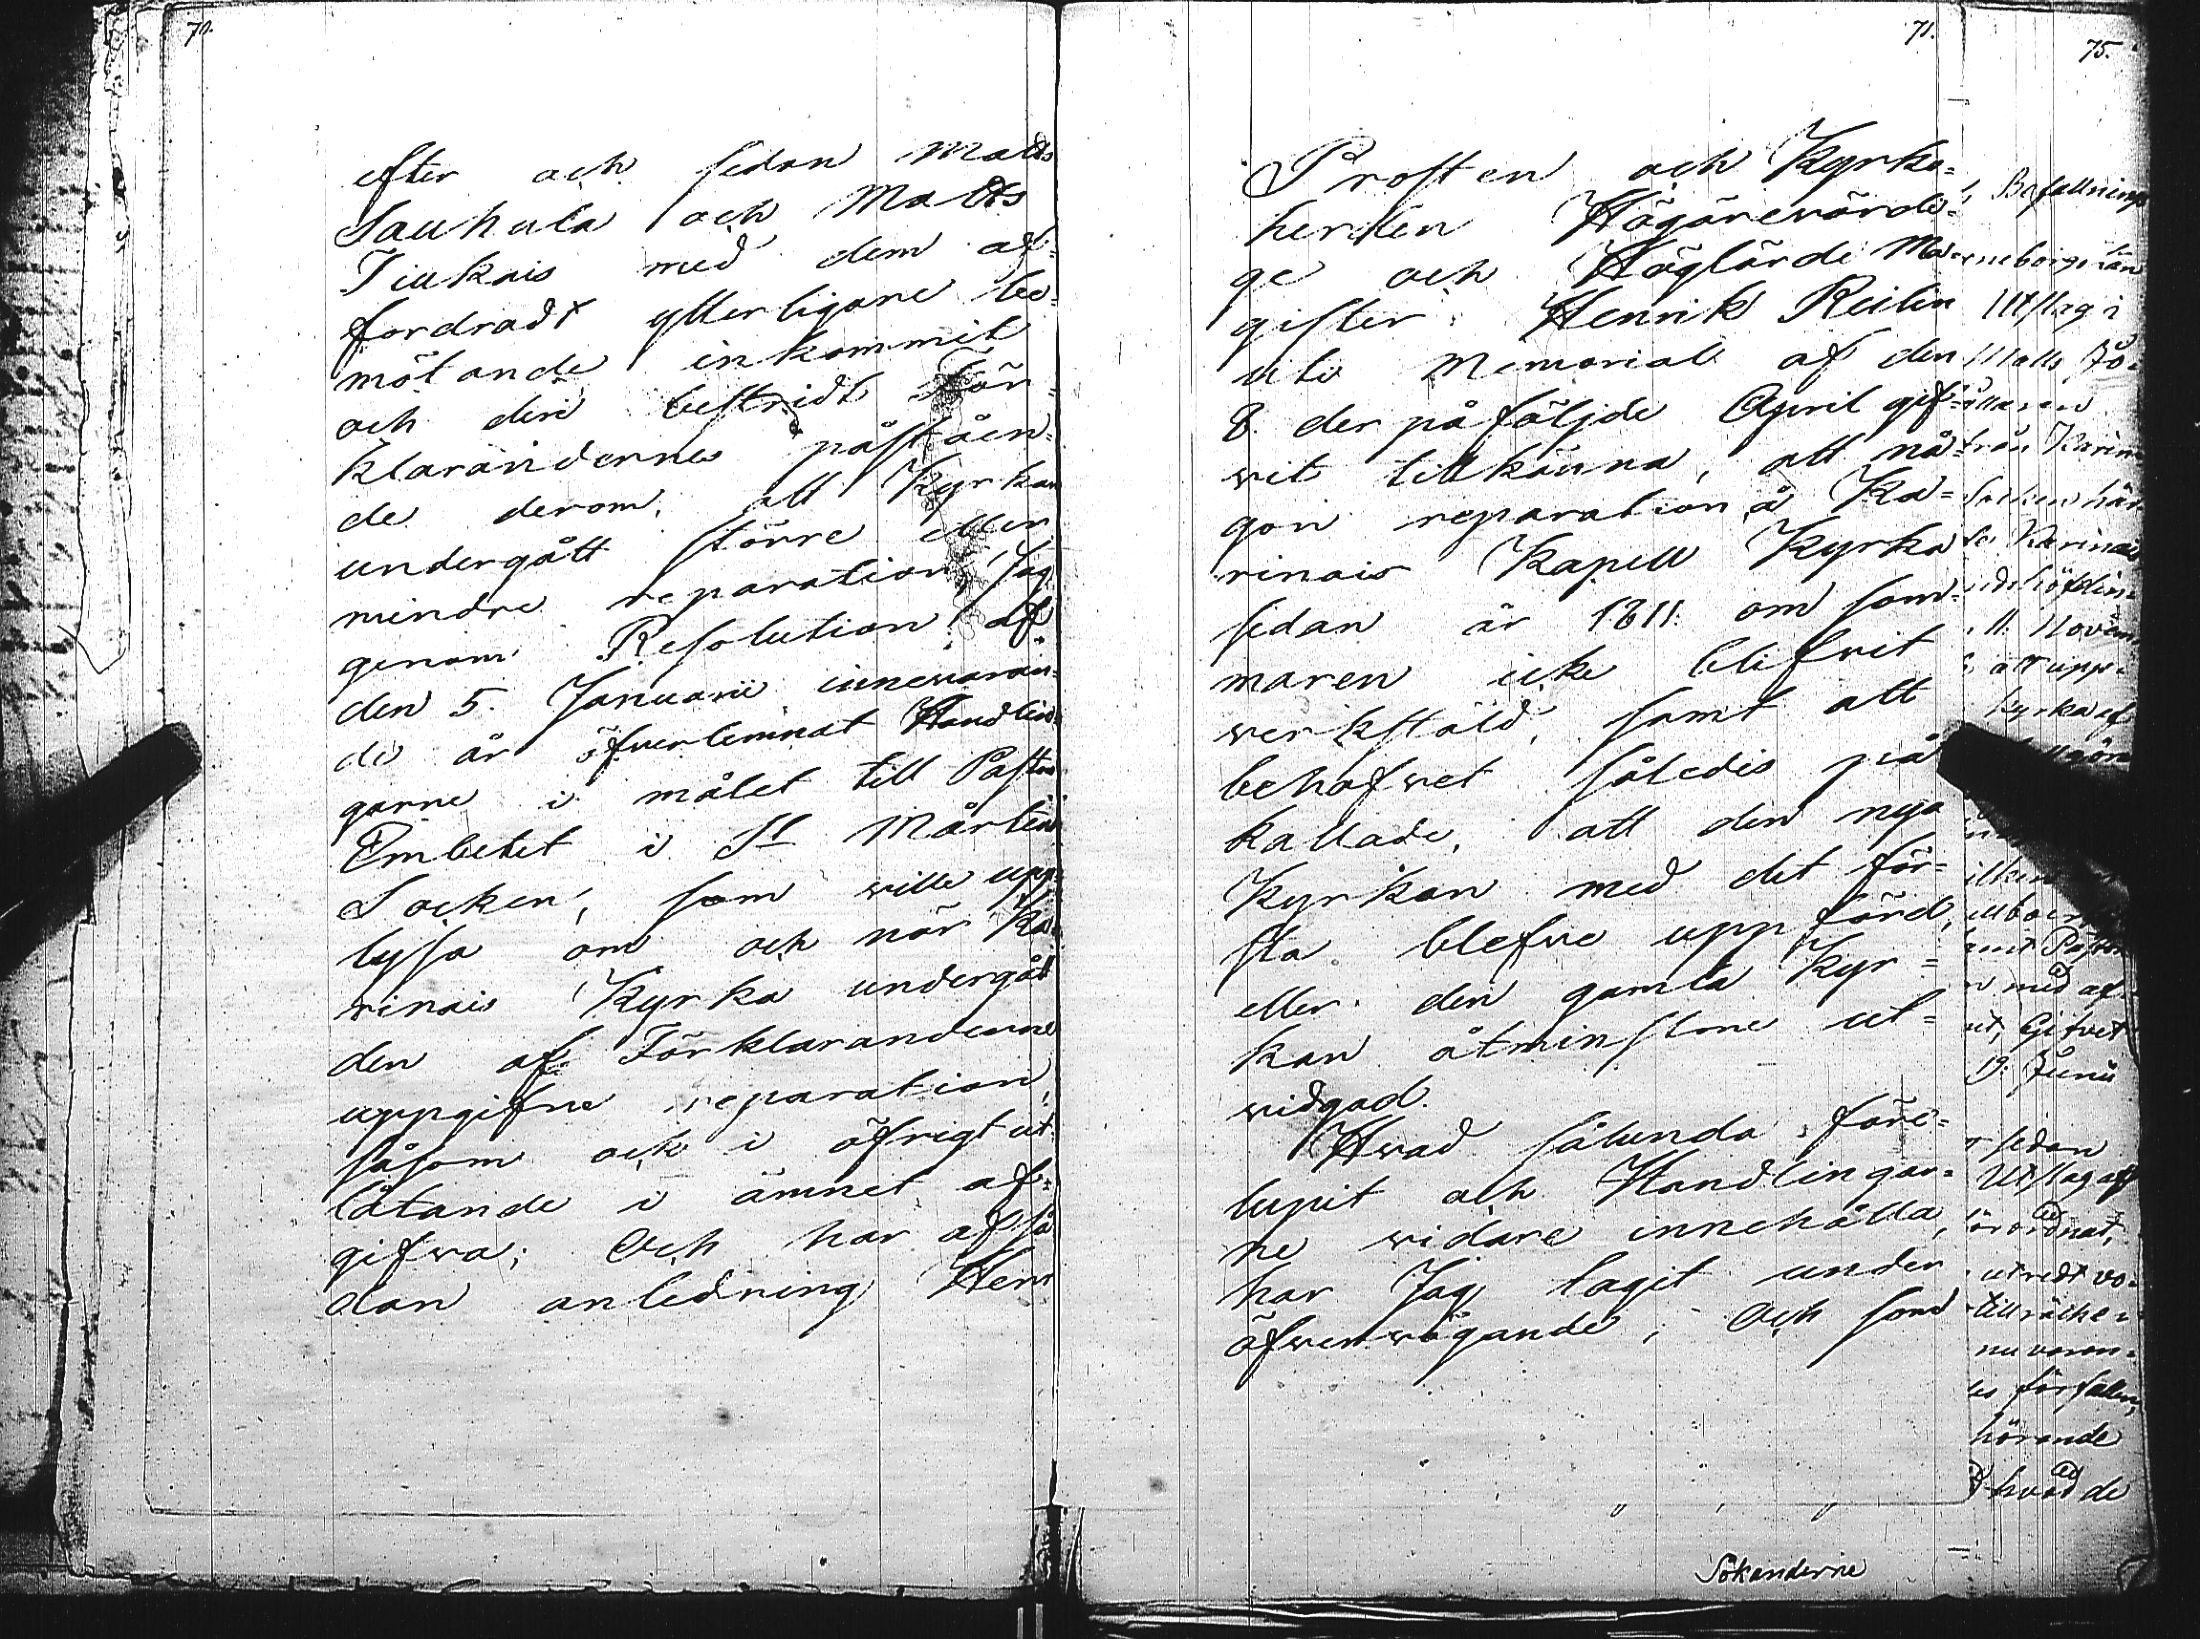 70.
efter och sedan Matts
Sauhula och Matts
Tiukais med dem af=
fordradt ytterligare be=
mötande inkommit
och deri bestridt För=
klaranderne påståen=
de derom, att Kyrkan
undergått större eller
mindre reparation, Jag
genom Resolution af
den 5. Januarii innevaran=
de år öfverlemnat Handlin=
garne i målet till Pastors
Embetet i St Mårtens
Socken, som wille upp=
lysa om och när Ka=
rinais Kyrka undergått
den af Förklaranderne
uppgifne reparation,
såsom ock i öfrigt ut=
låtande i ämnet af=
gifva; Och har af så
dan anledning Herr
71.
Prosten och Kyrko=
herden Högärevördi=
ge och Höglärde Ma=
gister Henrik Reilin
uti Memorial af den
8. derpåföljde April gif=
wit tillkänna, att nå=
gon reparation å Ka=
rinais Kapell Kyrka
sedan år 1811. om som=
maren icke blifvit
verkstäld, samt att
behofvet således på
kallade, att den nya
Kyrkan med det för=
sta blefve uppförd,
eller den gamla Kyr=
kan åtminstone ut=
vidgad.
Hvad sålunda före=
lupit och Handlingar=
ne vidare innehålla,
har Jag tagit under
öfvervägande; Och som
Sökanderne
75.
Befallnings
neborgs län
Utslag i
Matts Jö=
ållaren
från Karin
Socken här
Karinais
höfdin=
11. Novem
att upp=
kyrka af
med af=
ut, Gifvet
19. Junii
sedan
Utslag af
förordnat,
utredt vo=
tillräcke=
nuvaran=
förfallen,
hörande
hvad de